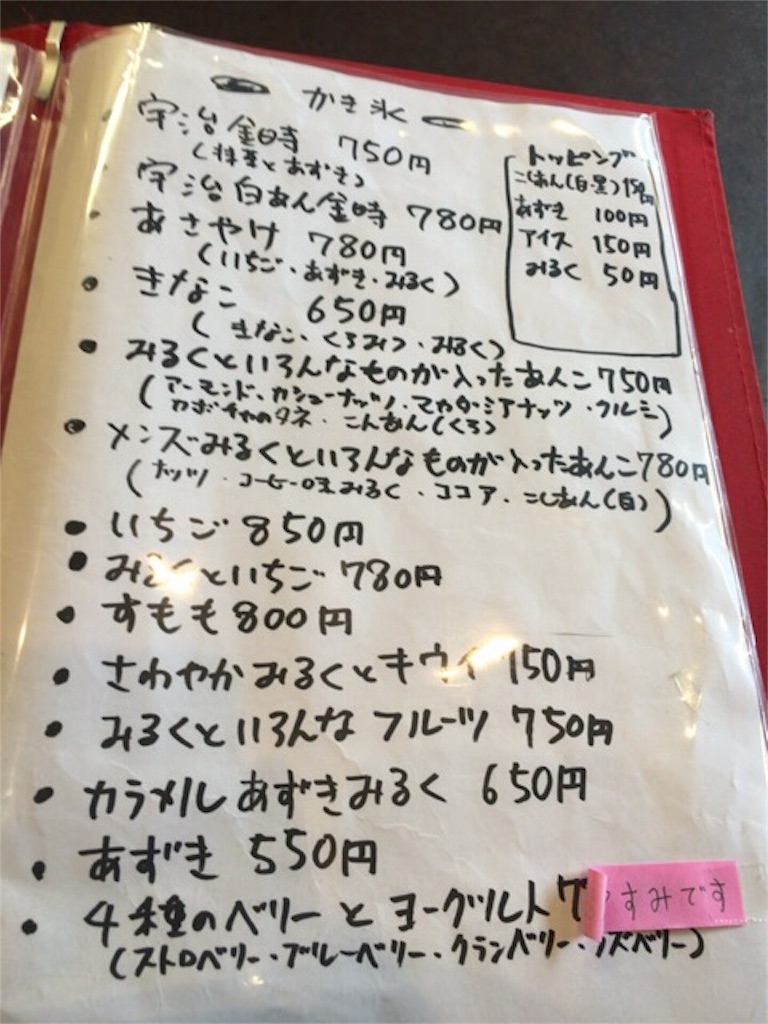 かき氷
宇治金時 750円
(抹茶とあずき)
宇治白あん金時 780円
あさやけ 780円
(いちご・あずき・みるく)
・きなこ 650円
(きなこ・くろみつ・みるく)
・みるくといろんなものが入ったあんこ 750円
(アーモンド、カシューナッツ、マカダミアナッツ・クルミ
カボチャのタネ・こしあん(くろ))
・メンズみるくといろんなものが入ったあんこ 780円
(ナッツ・コーヒー味みるく・ココア・こしあん(白))
・いちご 850円
・みるくといちご 780円
・すもも 800円
・さわやかみるくとキウイ 750円
・みるくといろんなフルーツ 750円
・カラメルあずきみるく 650円
・あずき 550円
・4種のベリーとヨーグルト 7
(ストロベリー・ブルーベリー・クランベリー・ラズベリー)
トッピング
こしあん(白・黒) 150円
あずき 100円
アイス 150円
みるく 50円
すみです